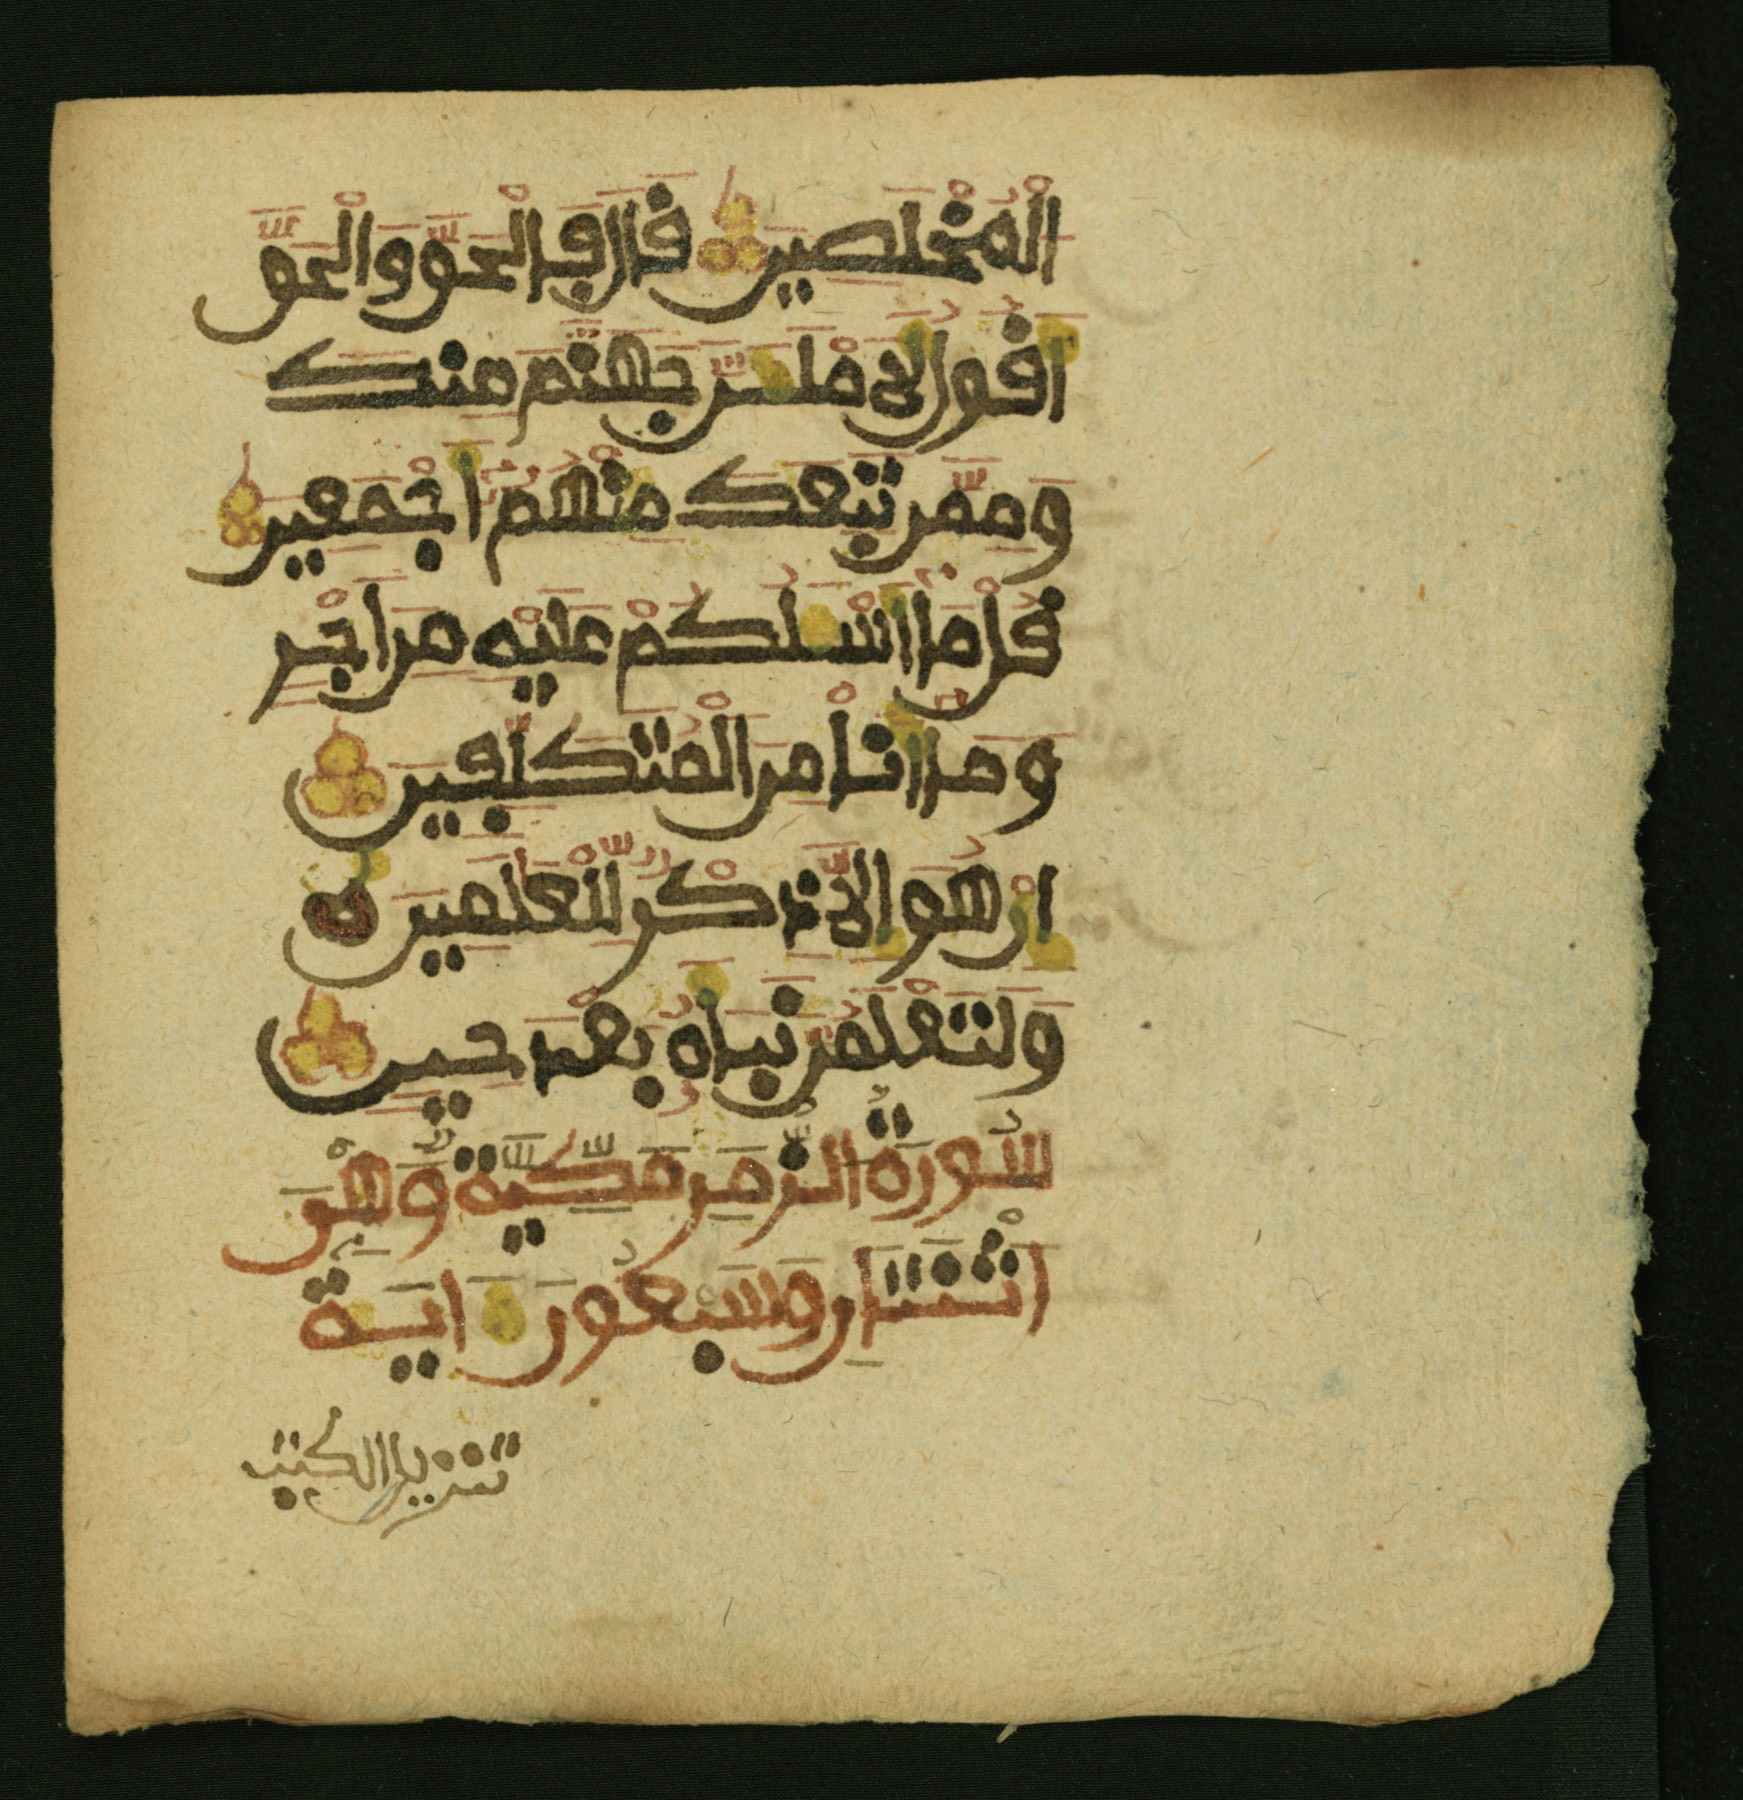 الْمُخْلَصِينَ قَالَ فَالْحَقَّ وَالْحَقَّ
أَقُولُ لَأَمْلَأَنَّ جَهَنَّمَ مِنكَ
وَمِمَّن تَبِعَكَ مِنْهُمُ أَجْمَعِينَ
قُلْ مَا أَسْـَٔلُكُمْ عَلَيْهِ مِنَ اَجْرٍ
وَمَا أَنَا مِنَ الْمُتَكَلِّفِينَ
إِنْ هُوَ إِلَّا ذِكْرٌ لِّلْعَٰلَمِينَ
وَلَتَعْلَمُنَّ نَبَأَهُ بَعْدَ حِينٍ
سُورَةُ الزُّمَرِ مَكِّيَّةٌ وَهْىَ
اثْنَتَانِ وَسَبْعُونَ ءَايَةً
تنزيل الكتب